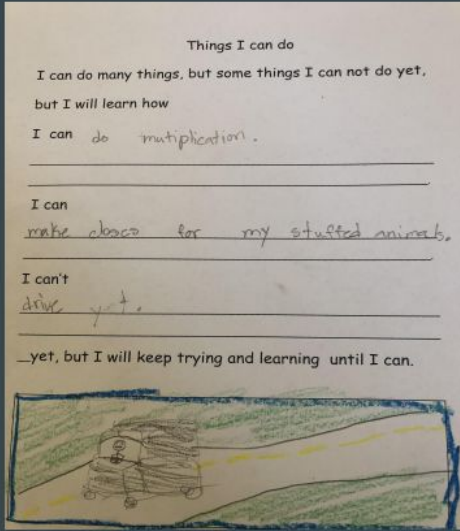 Things I can do
I can do many things, but some things I can not do yet,
but I will learn how
I can do mutiplication.
I can
make for my stuffed animals.
I can't
drive yet.
yet, but I will keep trying and learning until I can.